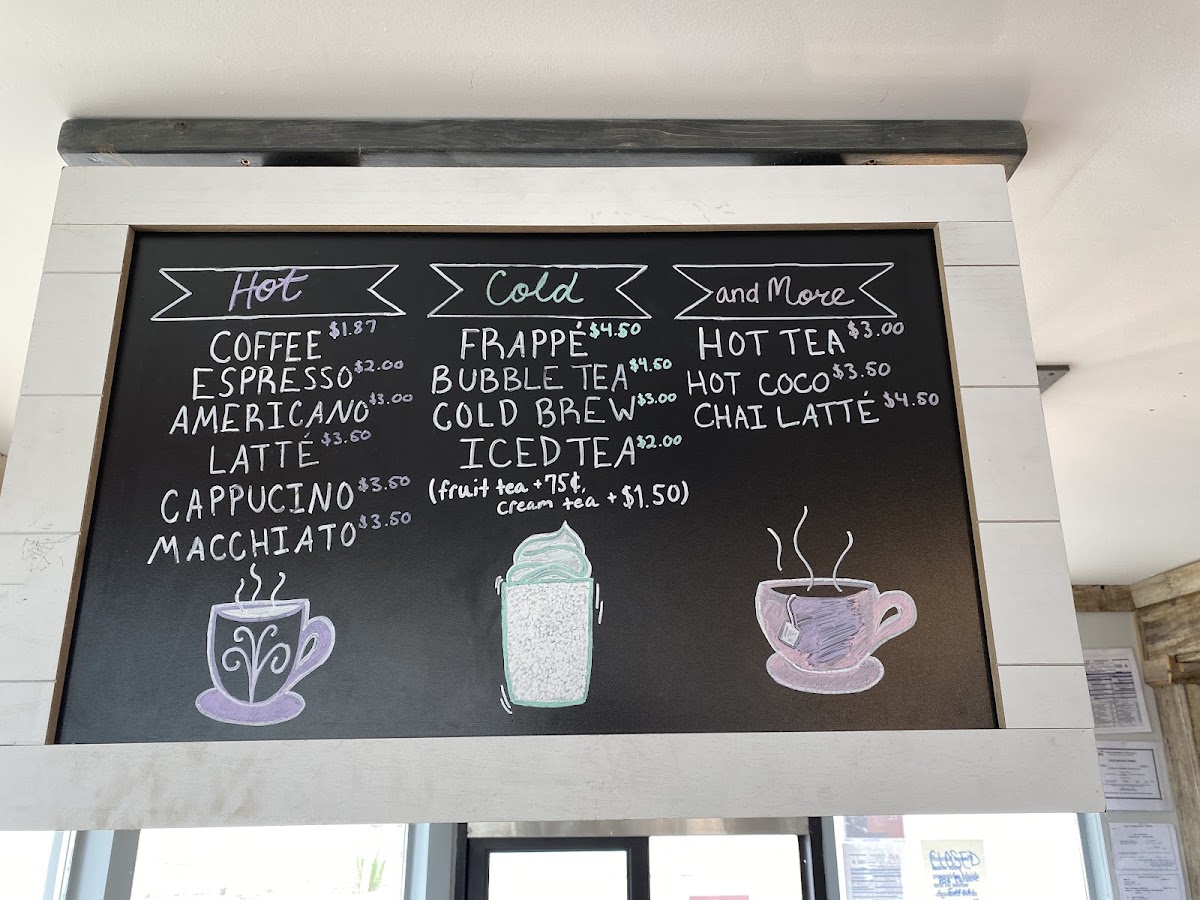 Hot
COFFEE $1.87
ESPRESSO $2.00
AMERICANO $3.00
LATTÉ $3.50
CAPPUCINO $3.50
MACCHIATO $3.50
Cold
FRAPPÉ $4.50
BUBBLE TEA $4.50
COLD BREW $3.00
ICED TEA $2.00
(fruit tea +75¢,
cream tea + $1.50)
and More
HOT TEA $3.00
HOT COCO $3.50
CHAI LATTÉ $4.50
CLOSED